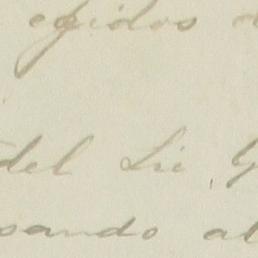 egidos
del Lic. G
sando al